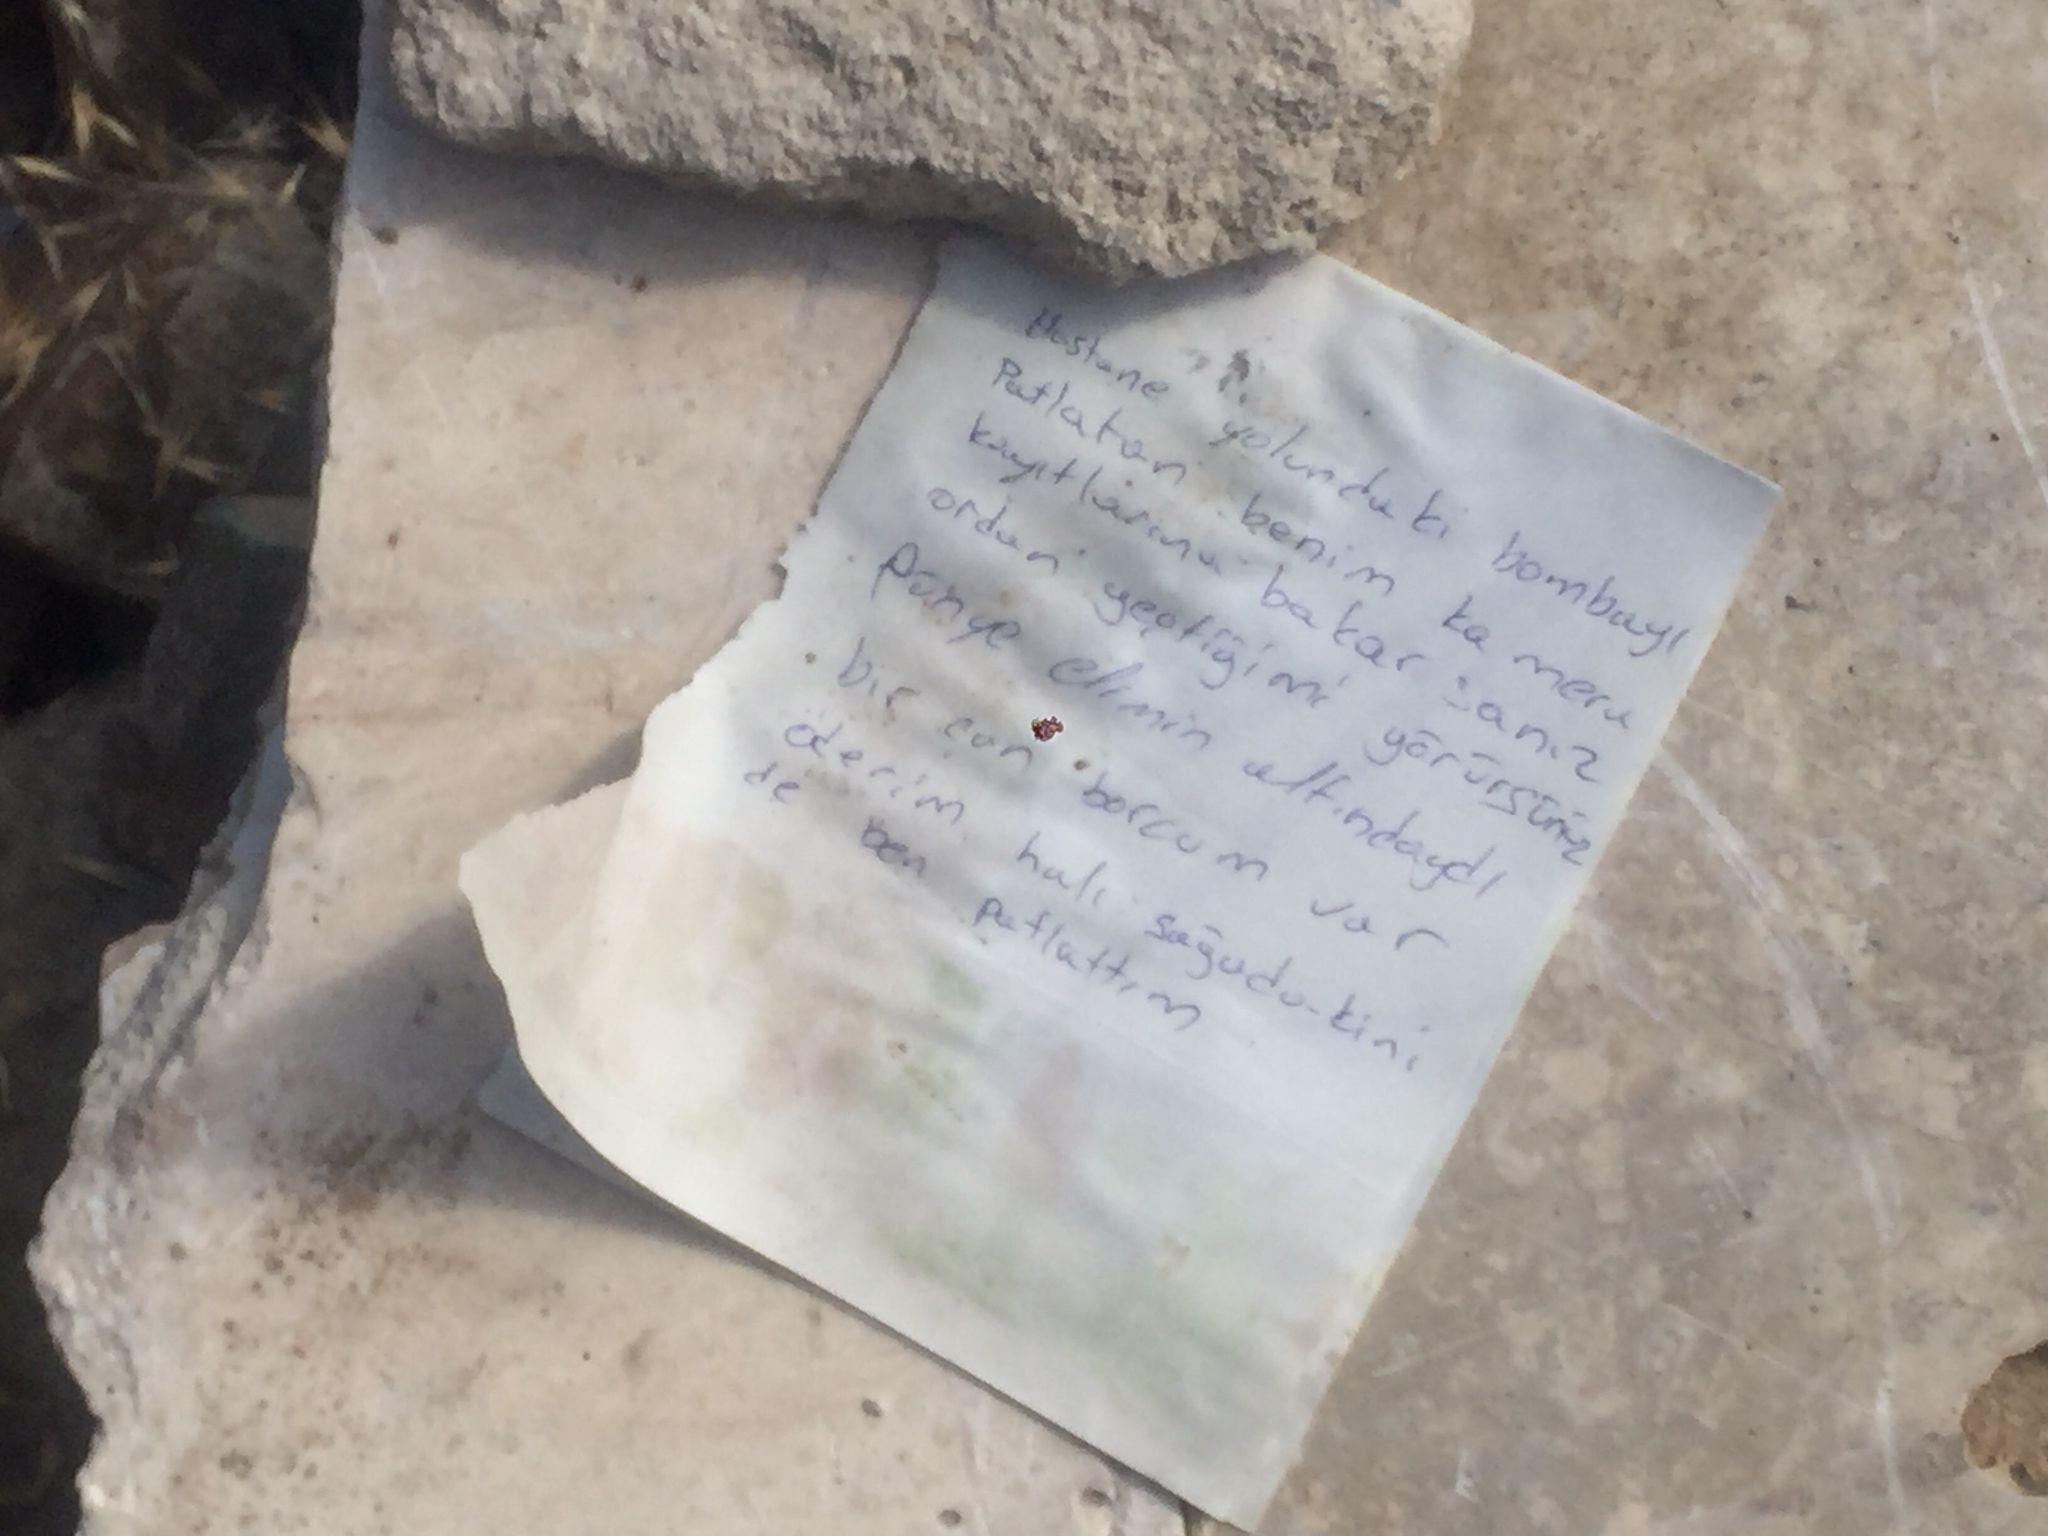 Hastane yolundaki bombayı
Patlatan benim kamera
kayıtlarına bakarsanız
ordan geçtiğimi görürsünüz
Panye elimin altındaydı
bir can borcum var
öderim halı sağudo-kini
de ben patlattım